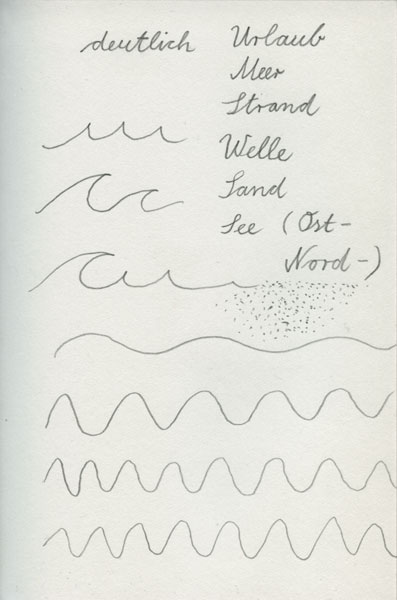 deutlich Urlaub
Meer
Strand
Welle
Sand
See (Ost-
Nord-)